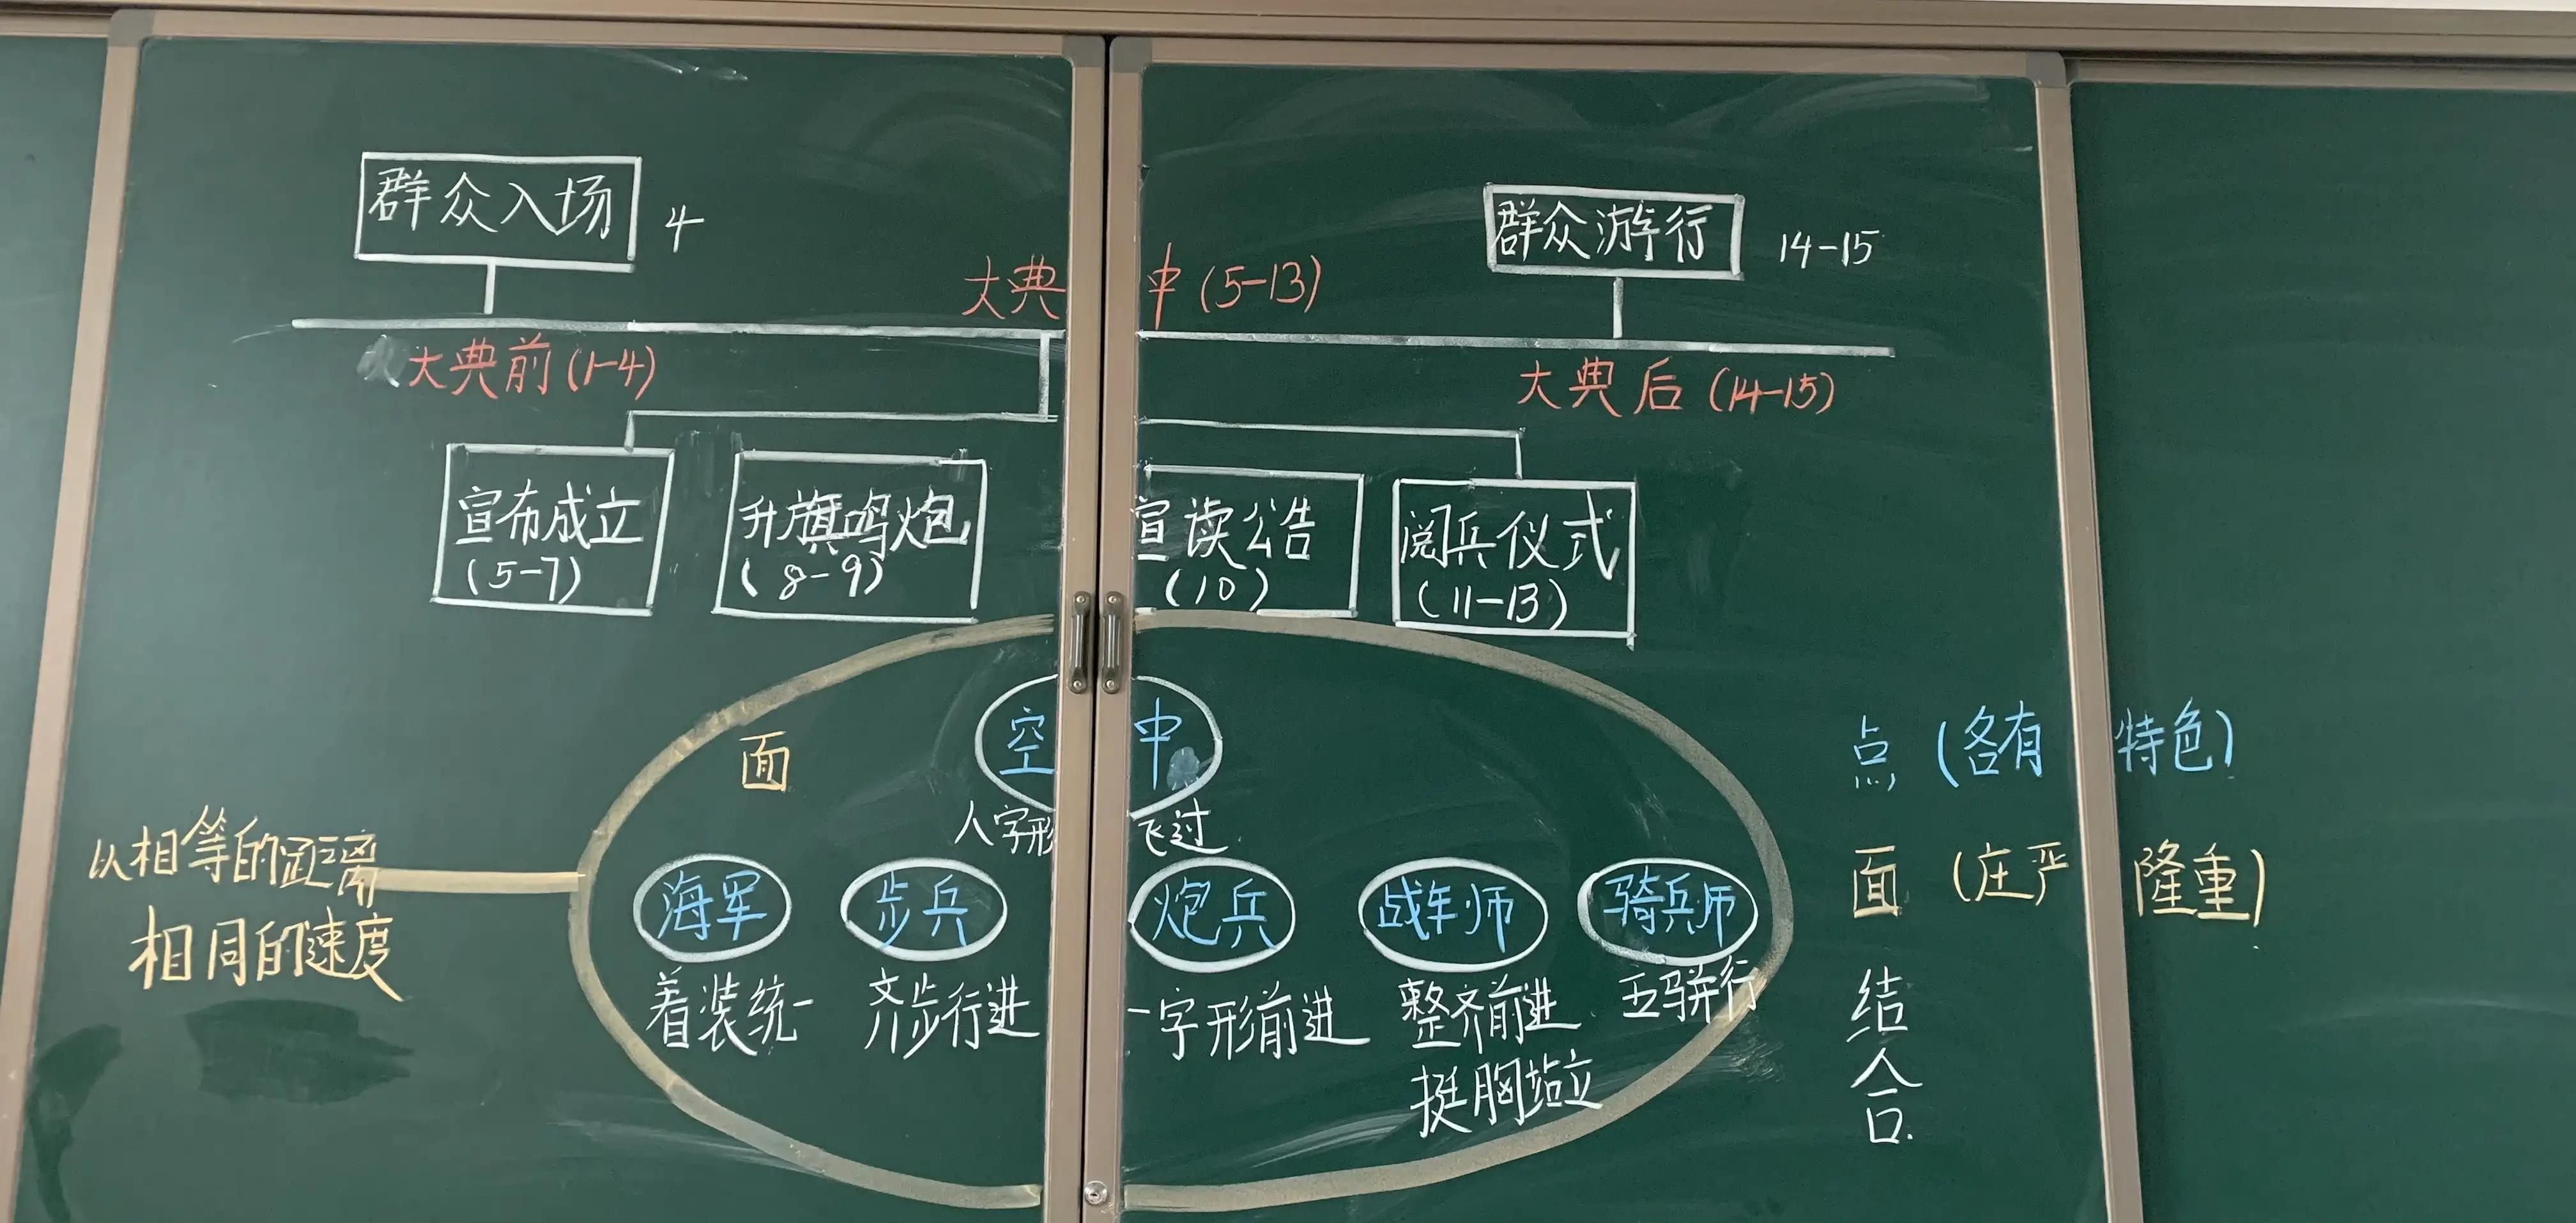 群众入场 4
群众游行 14-15
大典中(5-13)
大典前(1-4)
大典后(14-15)
宣布成立
(5-7)
升旗鸣炮
(8-9)
宣读公告
(10)
阅兵仪式
(11-13)
面
空中
人字形飞过
点(各有特色)
以相等的距离
相同的速度
海军
步兵
炮兵
战车师
骑兵师
着装统一
齐步行进
一字形前进
整齐前进
挺胸站立
五骑并行
面(庄严隆重)
结
合